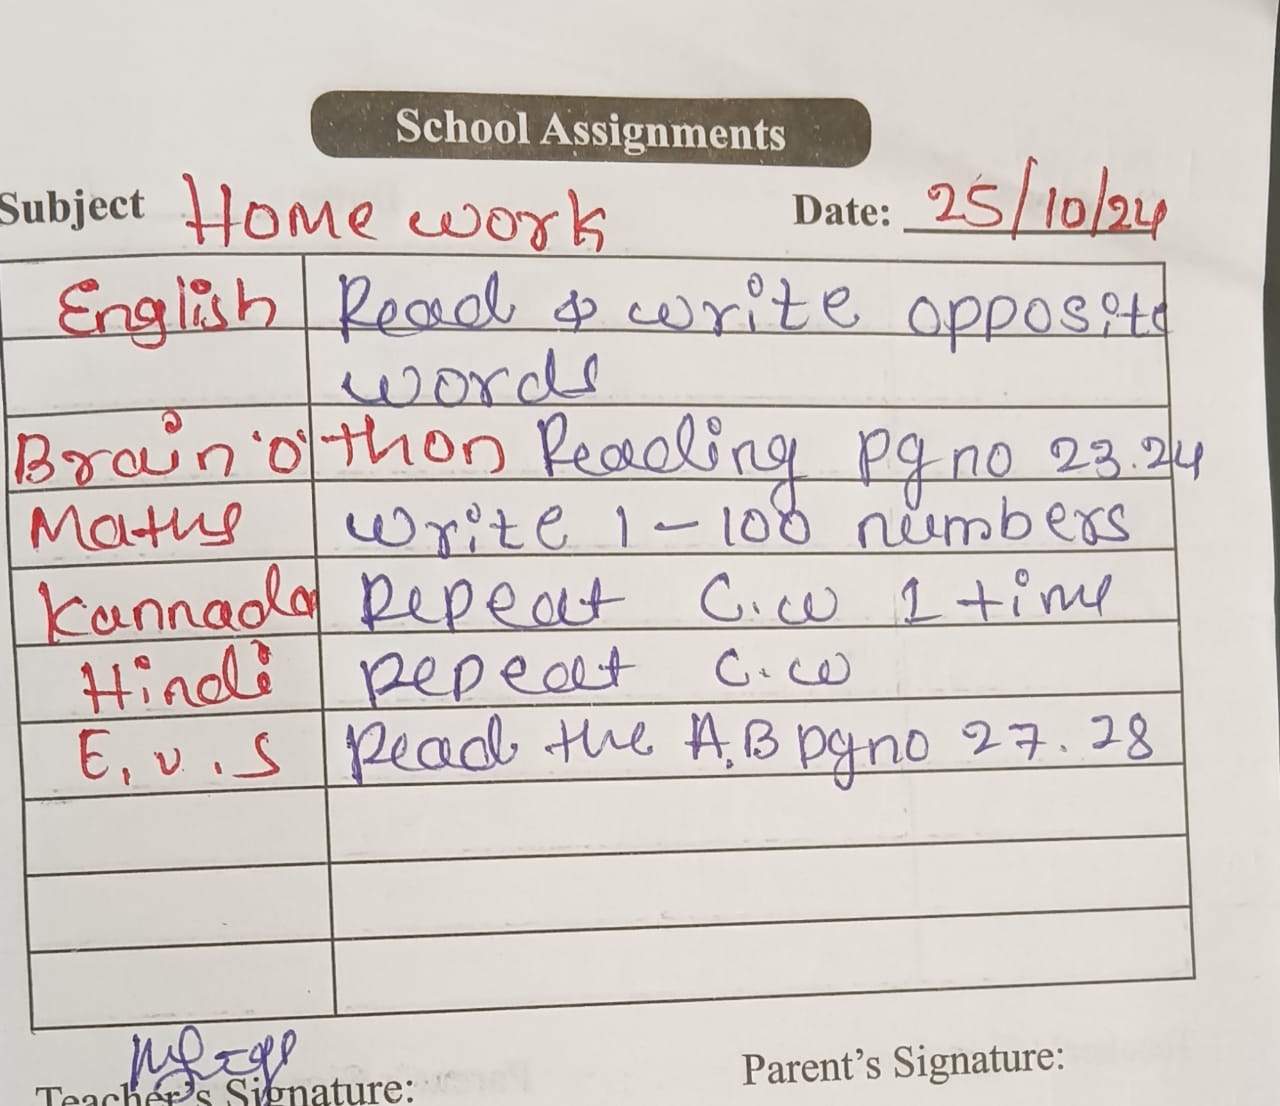 School Assignments
Subject Home work Date: 25/10/24
English Read & write opposite
words
Brain 'o' thon Reading pg no 23.24
Maths write 1-100 numbers
Kannada Repeat C.w 1 time
Hindi Repeat C.w
E.v.s Read the A.B pg no 27.28
Teacher's Signature: Parent's Signature: